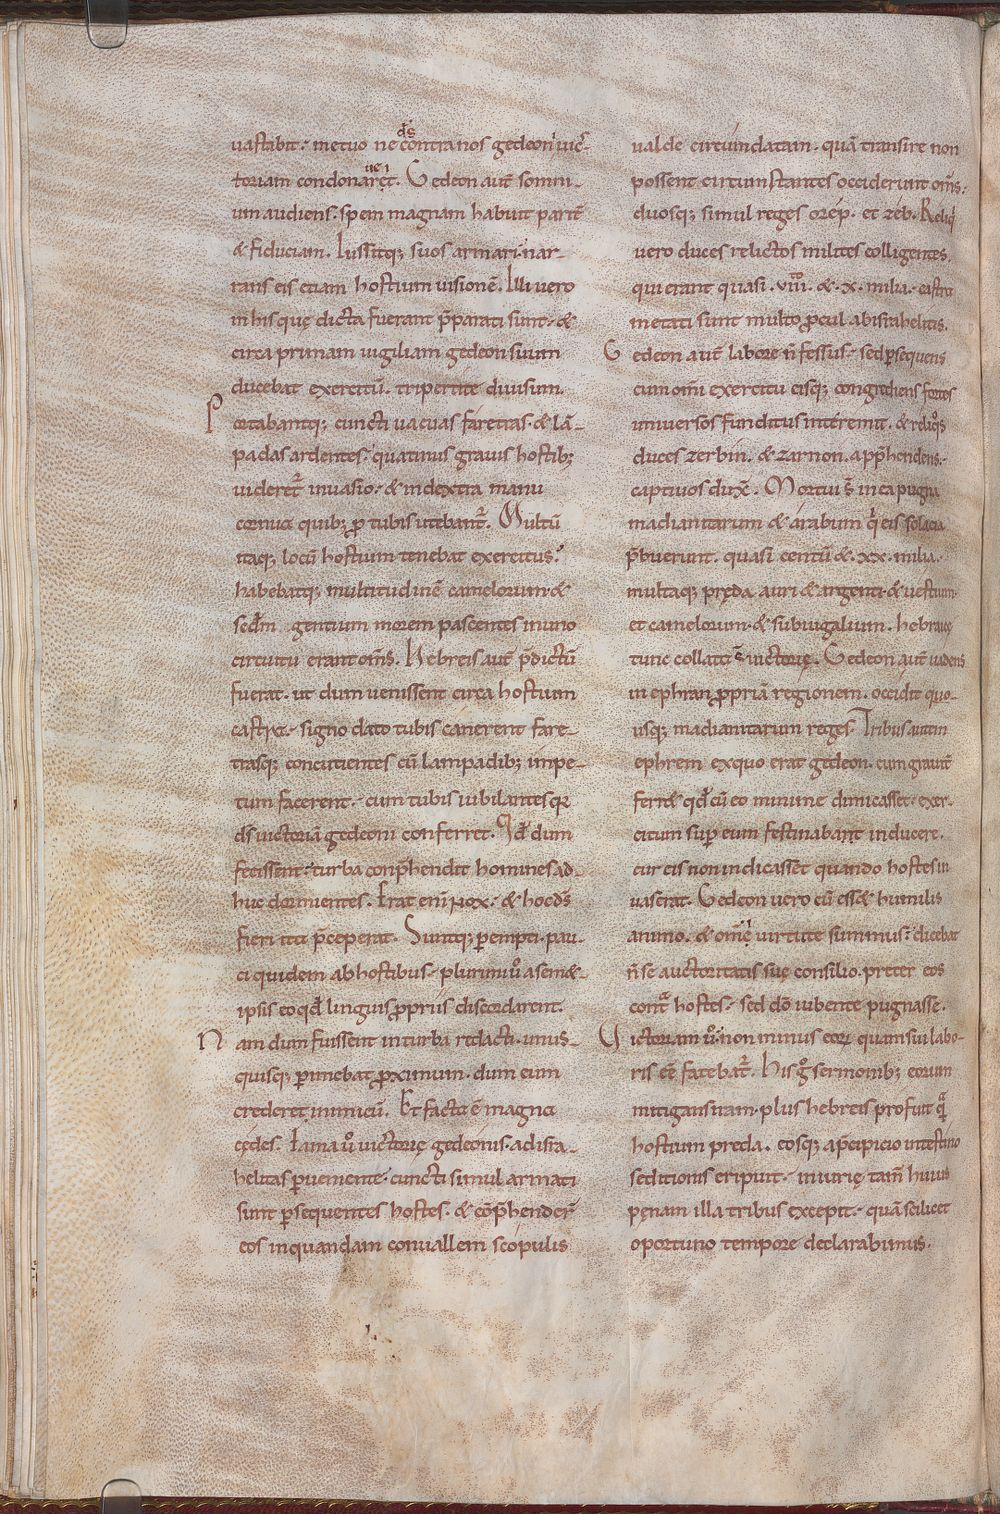 uastabit· metuo ne d̄s contra nos gedeoni uic-
toriam condonaret. Gedeon aut̄ somni-
um audiens· spem magnam habuit parit̄
& fiduciam. Iussitq; suos armari· nar-
rans eis etiam hostium uisionē. Illi uero
in his quę dicta fuerant p̄parati sunt· &
circa primam uigiliam gedeon suum
ducebat exercitū· tripertite diuisum.
Portabantq; cuncti uacuas faretras· & lā-
padas ardentes· quatinus grauis hostib;
uideret᷑ inuasio· & in dextra manu
cornua quib; ꝓ tubis utebant᷑. Multū
itaq; locū hostium tenebat exercitus·
habebatq; multitudinē camelorum· &
scđm gentium morem pascentes in uno
circuitu erant om̄s. Hebreis aut̄ p̄dictū
fuerat· ut dum uenissent circa hostium
castra· signo dato tubis canerent fare-
trasq; concutientes cū lampadib; impe-
tum facerent· cum tubis iubilantes qđ
d̄s uictoriā gedeoni conferret. Qđ dum
fecissent· turba conp̄hendit homines ad-
huc dormientes. Erat eni nox· & hoc d̄s
fieri ita p̄ceperat. Suntq; ꝑempti· pau-
ci quidem ab hostibus· plurimi u̅ a sem&
ipsis eo qđ linguis ꝓpriis discordarent.
Nam dum fuissent in turba redacti· unus-
quisq; ꝑimebat ꝓximum· dum eum
crederet inimicū. Et facta ē magna
cędes. Fama u̅ uictorię gedeonis· ad isra-
helitas ꝑueniente· cuncti simul armati
sunt ꝑsequentes hostes· & cōp̄hender̄
eos in quandam conuallem scopulis
ualde circumdatam· quā transire non
possent circumstantes occiderunt om̄s·
duosq; simul reges oreb· et zeb. Reliq̇
uero duces relictos milites colligentes·
qui erant quasi· viii· &· x· milia· castra
metati sunt multo ꝓcul ab israhelitis.
Gedeon aut̄ labore n̄ fessus· sed ꝑsequens
cum om̄i exercitu eisq; congrediens fortes
uniuersos funditus interemit· & reliq̊s
duces zerbin· & zarnon· app̄hendens·
captiuos dux̄. Mortui s̄ in ea pugna
madianitarum & arabum q̇ eis solacia
p̄buerunt· quasi centū &· xx· milia·
multaq; pręda auri & argenti· & uestium·
et camelorum· & subiugalium· hebraicę
tunc collata s̄ uictorię. Gedeon aut̄ uadens
in ephran ꝓpriā regionem· occidit quo-
usq; madianitarum reges. Tribus autem
ephrem ex quo erat gedeon· cum grauit̄
ferr& qđ cū eo minime dimicasset· exer-
citum sup̄ eum festinabant inducere·
cur eis non indicasset quando hostes in-
uaserat. Gedeon uero cū ess& humilis
animo· & omē uirtute summus· dicebat
n̄ se auctoritatis suę consilio· preter eos
contᷓ hostes· sed dō iubente pugnasse.
Victoriam u̅ non minus eorꝝ quam sui labo-
ris eē fatebat᷑. His g̊ sermonib; eorum
mitigans iram· plus hebreis profuit qᷓ
hostium preda· eosq; a p̄cipicio intestino
seditionis eripuit· iniurię tam̄ huius
pęnam illa tribus excepit· quā scilicet
oportuno tempore declarabimus·